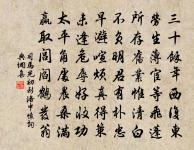 三十餘年西復東
勞生薄宦等飛蓬
所存舊業惟清白
不負明君有朴忠
早避喧煩真得策
未逢危辱好收功
太平觸處農桑滿
贏取閭閻鶴髮翁
司馬光初到洛中書懷